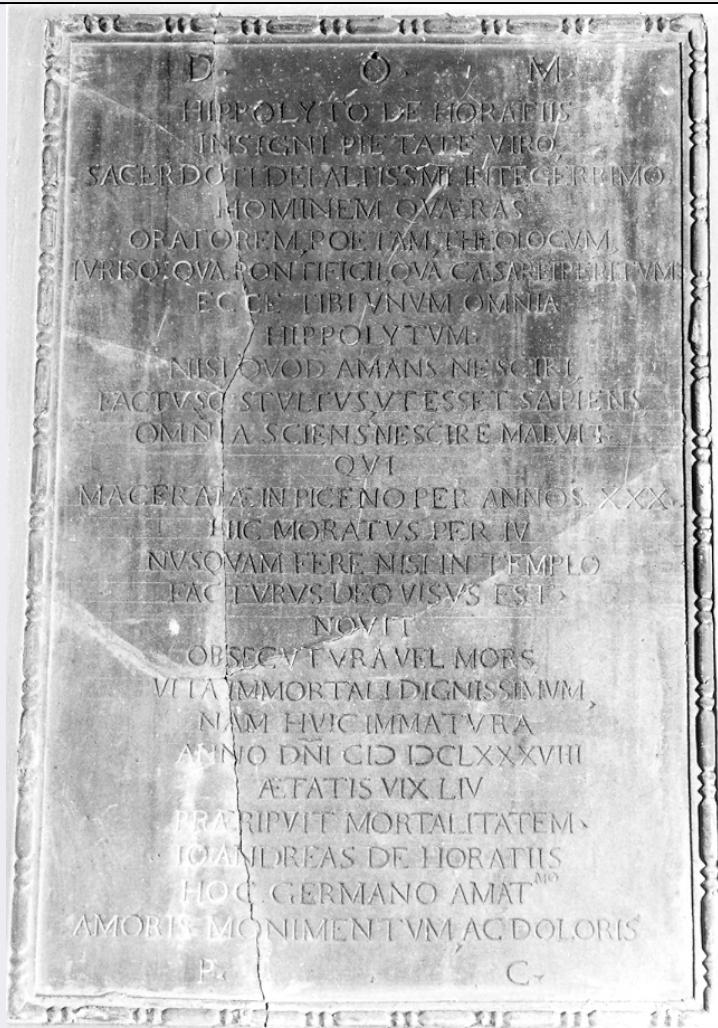 D· O· M·
HIPPOLYTO DE HORATIIS
INSIGNI PIETATE VIRO
SACERDOTI DEI ALTISSMI INTEGERRIMO
HOMINEM QVÆRAS
ORATOREM, POETAM, THEOLOGVM,
IVRISQ; QVA PONTIFICII, QVA CÆSAREI PERITVM
ECCE TIBI VNVM OMNIA
HIPPOLYTVM
NISI QVOD AMANS NESCIRI,
FACTVSQ STVLTVS, VT ESSET SAPIENS,
OMNIA SCIENS NESCIRE MALVIT.
QVI
MACERATÆ IN PICENO PER ANNOS XXX
HIC MORATVS PER IV
NVSQVAM FERE NISI IN TEMPLO
FACTVRVS DEO VISVS EST·
NOVIT
OBSECVTVRA VEL MORS
VITA IMMORTALI DIGNISSIMVM,
NAM HVIC IMMATVRA
ANNO DÑI CIƆ IƆCLXXXVIII
ÆTATIS VIX LIV
PRÆRIPVIT MORTALITATEM·
IO ANDREAS DE HORATIIS
HOC GERMANO AMATᴹᴼ
AMORIS MONIMENTVM, AC DOLORIS
P· C·